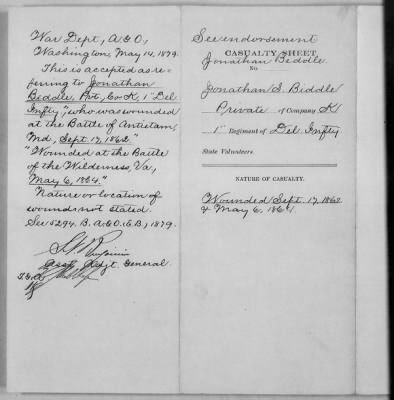 War Dept, A.G.O,
Washington, May 14, 1879.
This is accepted as re-
fering to Jonathan
Beddle, Pvt, Co K, 1" Del
Infty, "who was wounded
at the Battle of Antietam,
Md, Sept. 17, 1862."
"Wounded at the Battle
of the Wilderness, Va,
May 6, 1864."
Nature or location of
wound not stated.
See 5294. B. A.G.O. (E.B), 1879.
S. N. Benjamin
Asst Adjt. General
See endorsement
CASUALTY SHEET
Jonathan Beddle.
No.
Jonathan S. Biddle
Private of Company K
1" Regiment of Del. Infty
State Volunteers.
NATURE OF CASUALTY.
Wounded Sept. 17, 1862
& May 6, 1864.